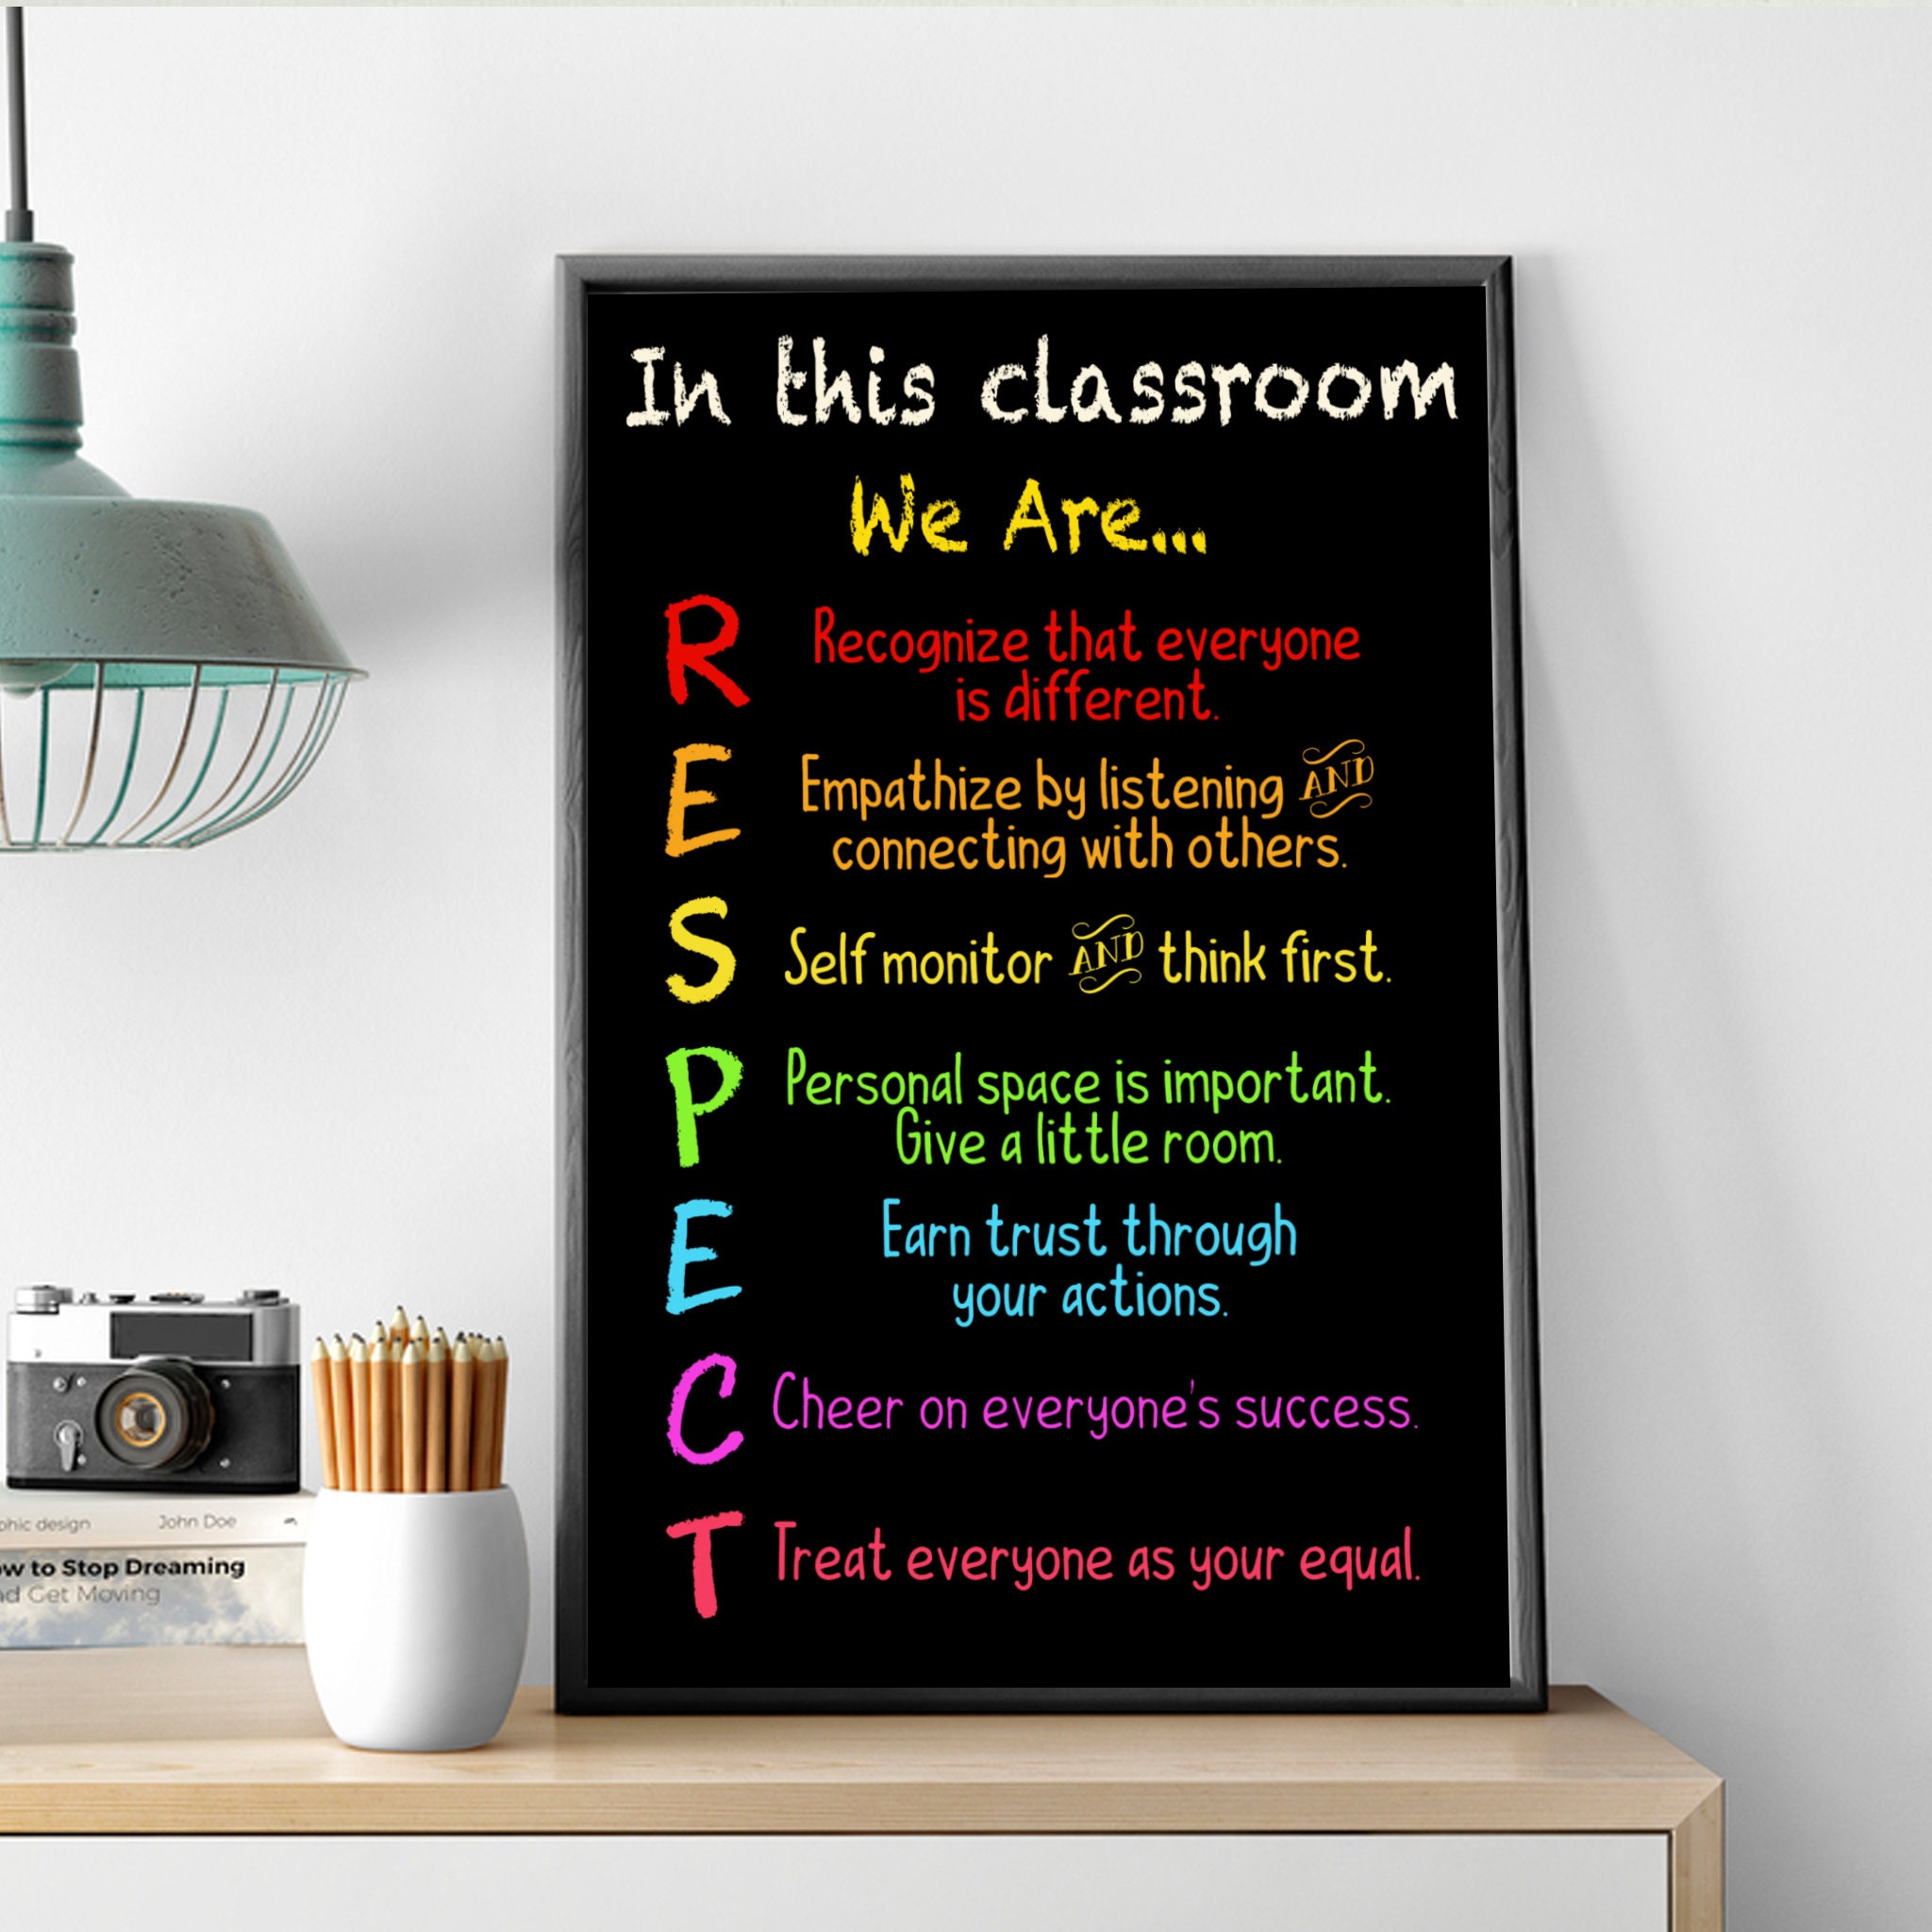 In this classroom
We Are...
R
Recognize that everyone
is different.
E
Empathize by listening AND
connecting with others.
S
Self monitor AND think first.
P
Personal space is important.
Give a little room.
E
Earn trust through
your actions.
C
Cheer on everyone's success.
T
Treat everyone as your equal.
phic design John Doe
ow to Stop Dreaming
nd Get Moving